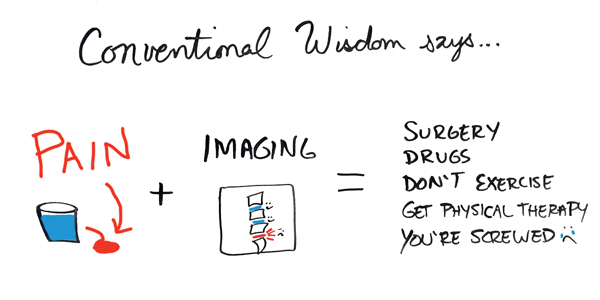 Conventional Wisdom says...
PAIN + IMAGING =
SURGERY
DRUGS
DON'T EXERCISE
GET PHYSICAL THERAPY
YOU'RE SCREWED